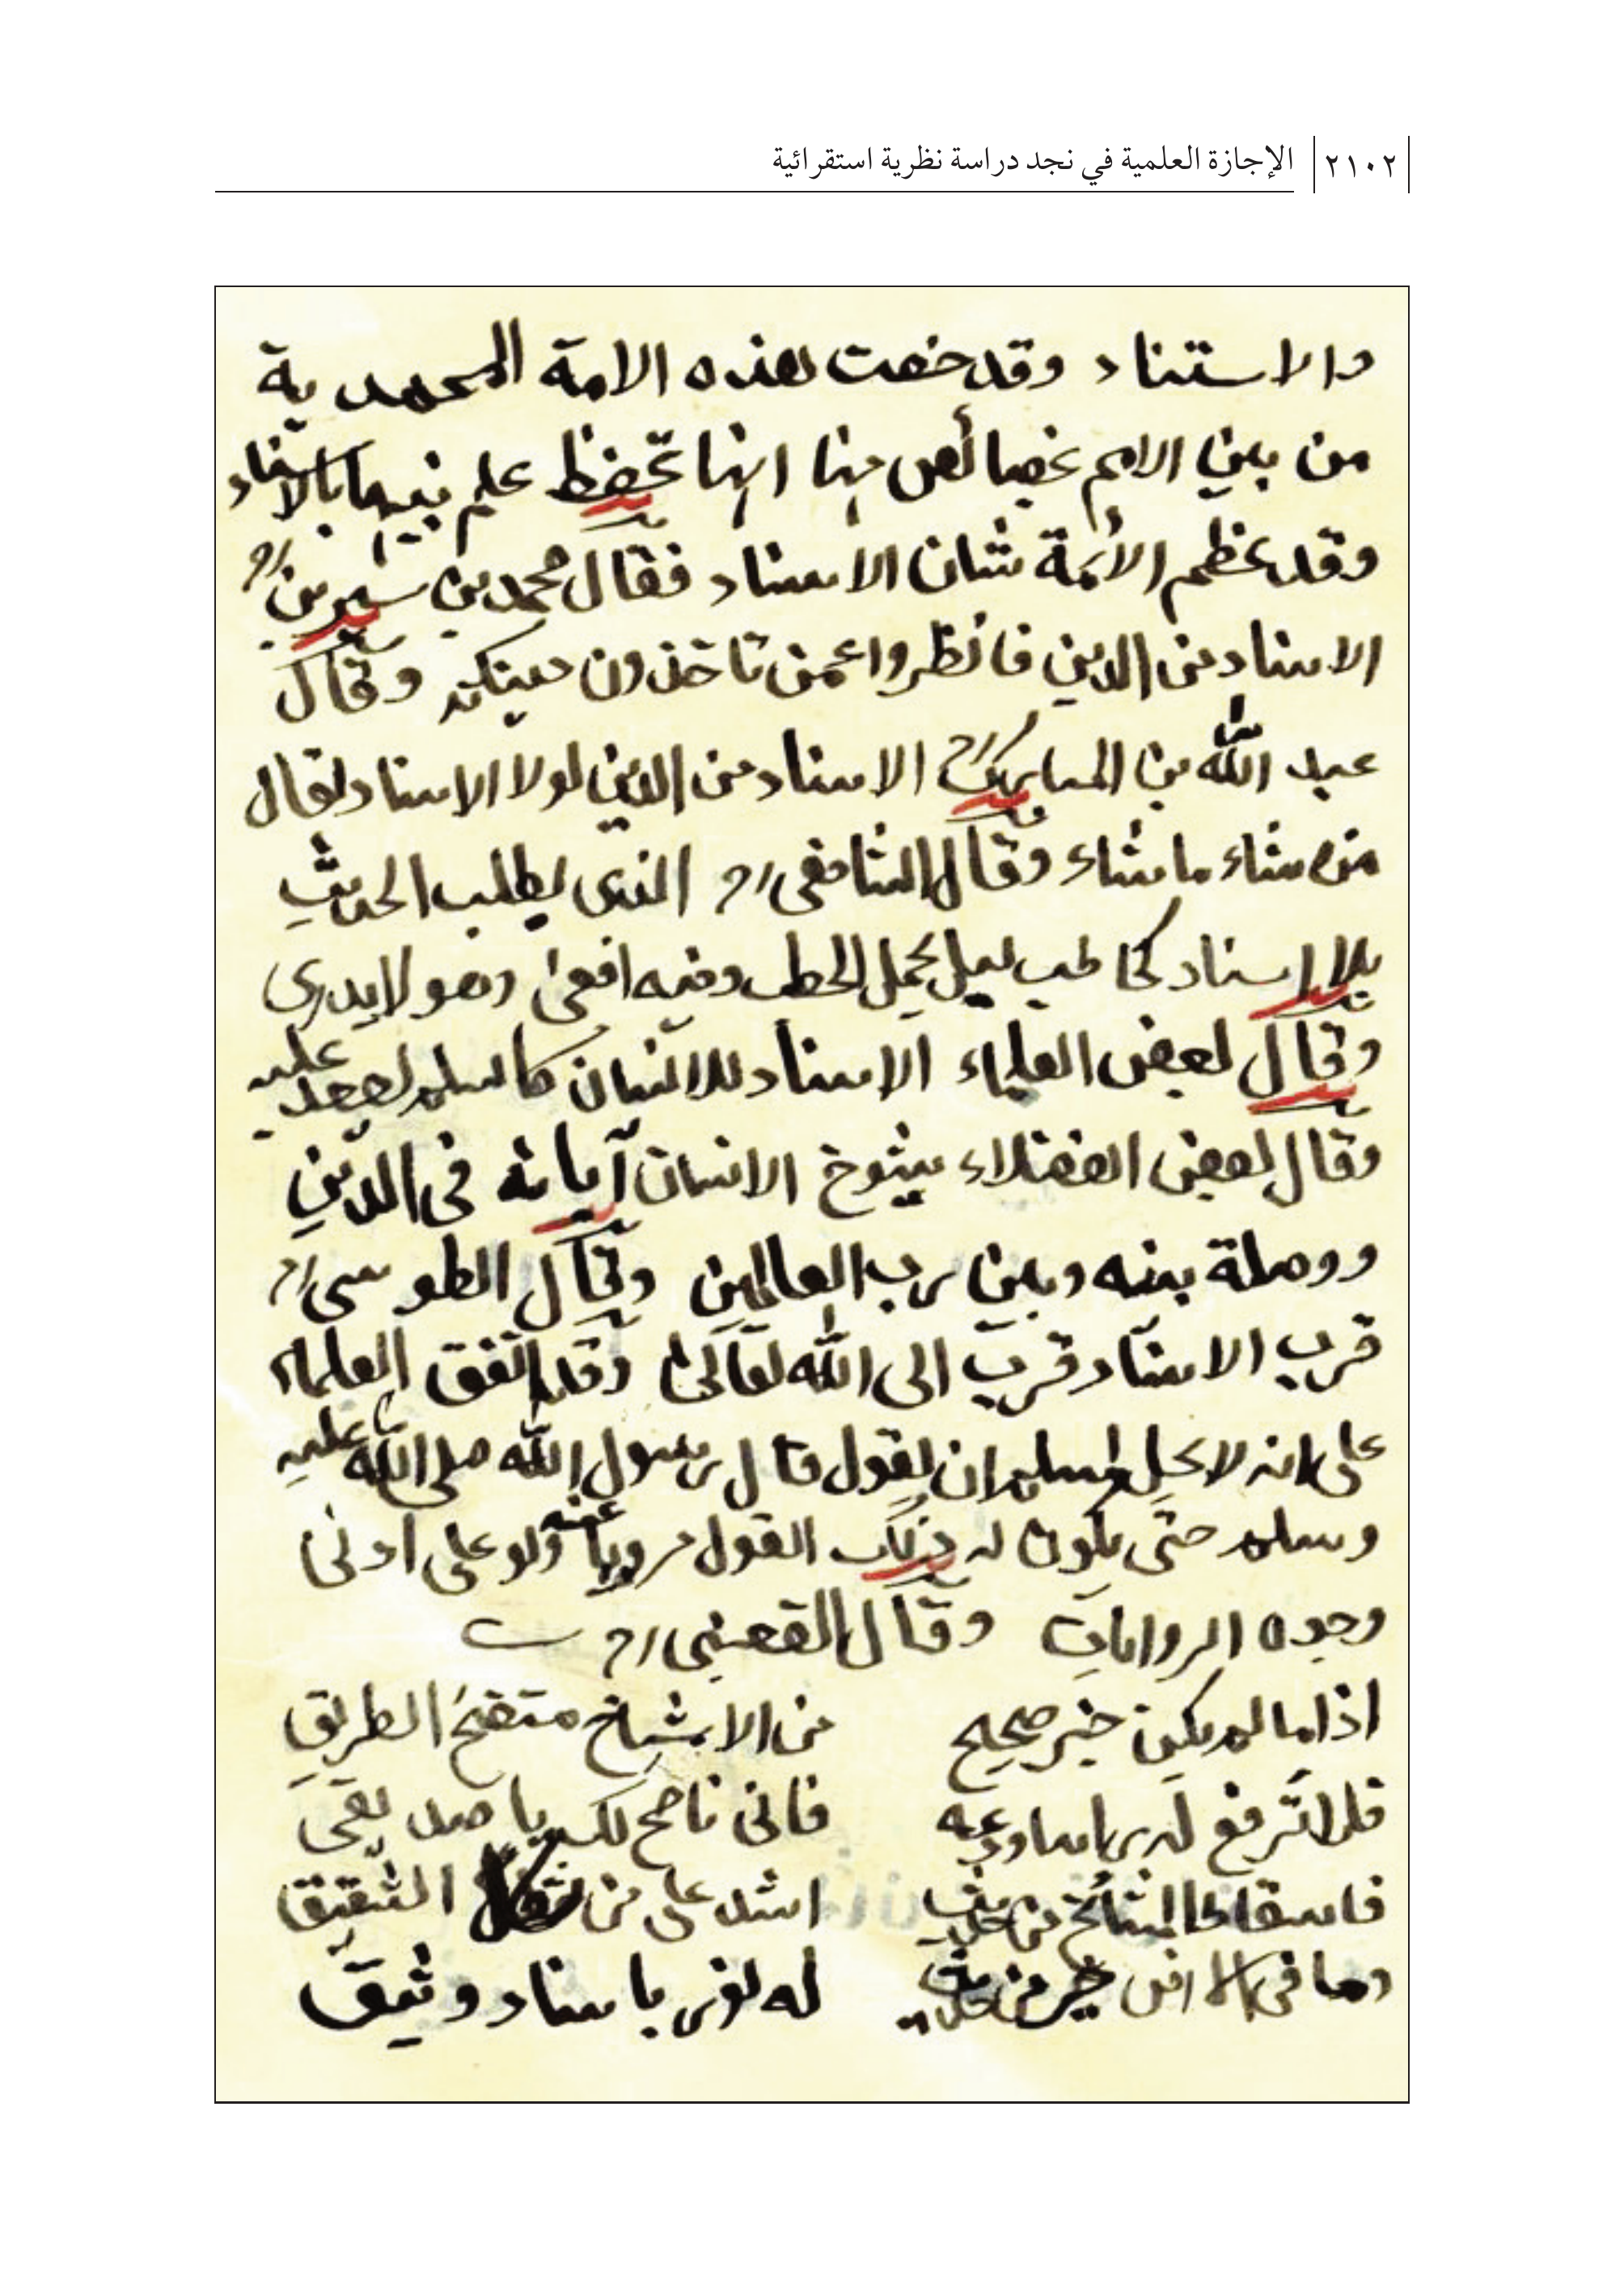 ٢١٠٢ الإجازة العلمية في نجد دراسة نظرية استقرائية
والاستناد وقد خصت هذه الامة المحمدية
من بين الامم بخصائص منها انها تحفظ علم نبيها بالاسناد
وقد عظم الأئمة شان الاسناد فقال محمد بن سيرين رح
الاسناد من الدين فانظروا عمن تاخذون دينكم وقال
عبد الله بن المبارك رح الاسناد من الدين لولا الاسناد لقال
من شاء ما شاء وقال الشافعي رح الذى يطلب الحديث
بلا اسناد كحاطب ليل يحمل الحطب وفيه افعى وهو لا يدرى
وقال بعض العلماء الاسناد للانسان كالسلم يصعد عليه
وقال بعض الفضلاء شيوخ الانسان آبائه فى الدين
ووصلة بينه وبين رب العالمين وقال الطوسى رح
قرب الاسناد قرب الى الله تعالى وقد اتفق العلماء
على انه لا يحل لمسلم ان يقول قال رسول الله صلى الله عليه
وسلم حتى يكون له ذلك القول مرويا عنه ولو على ادنى
وجوه الروايات وقال القعنبى رح
اذا ما لم يكن خبر صحيح من الاشياخ متضح الطريق
فلا ترفع له راسا ودعه فانى ناصح لك يا صديقى
فاسقاط المشائخ من حديث اشد على من الشقيق
وما فى الارض خير من حديث له نور باسناد وثيق